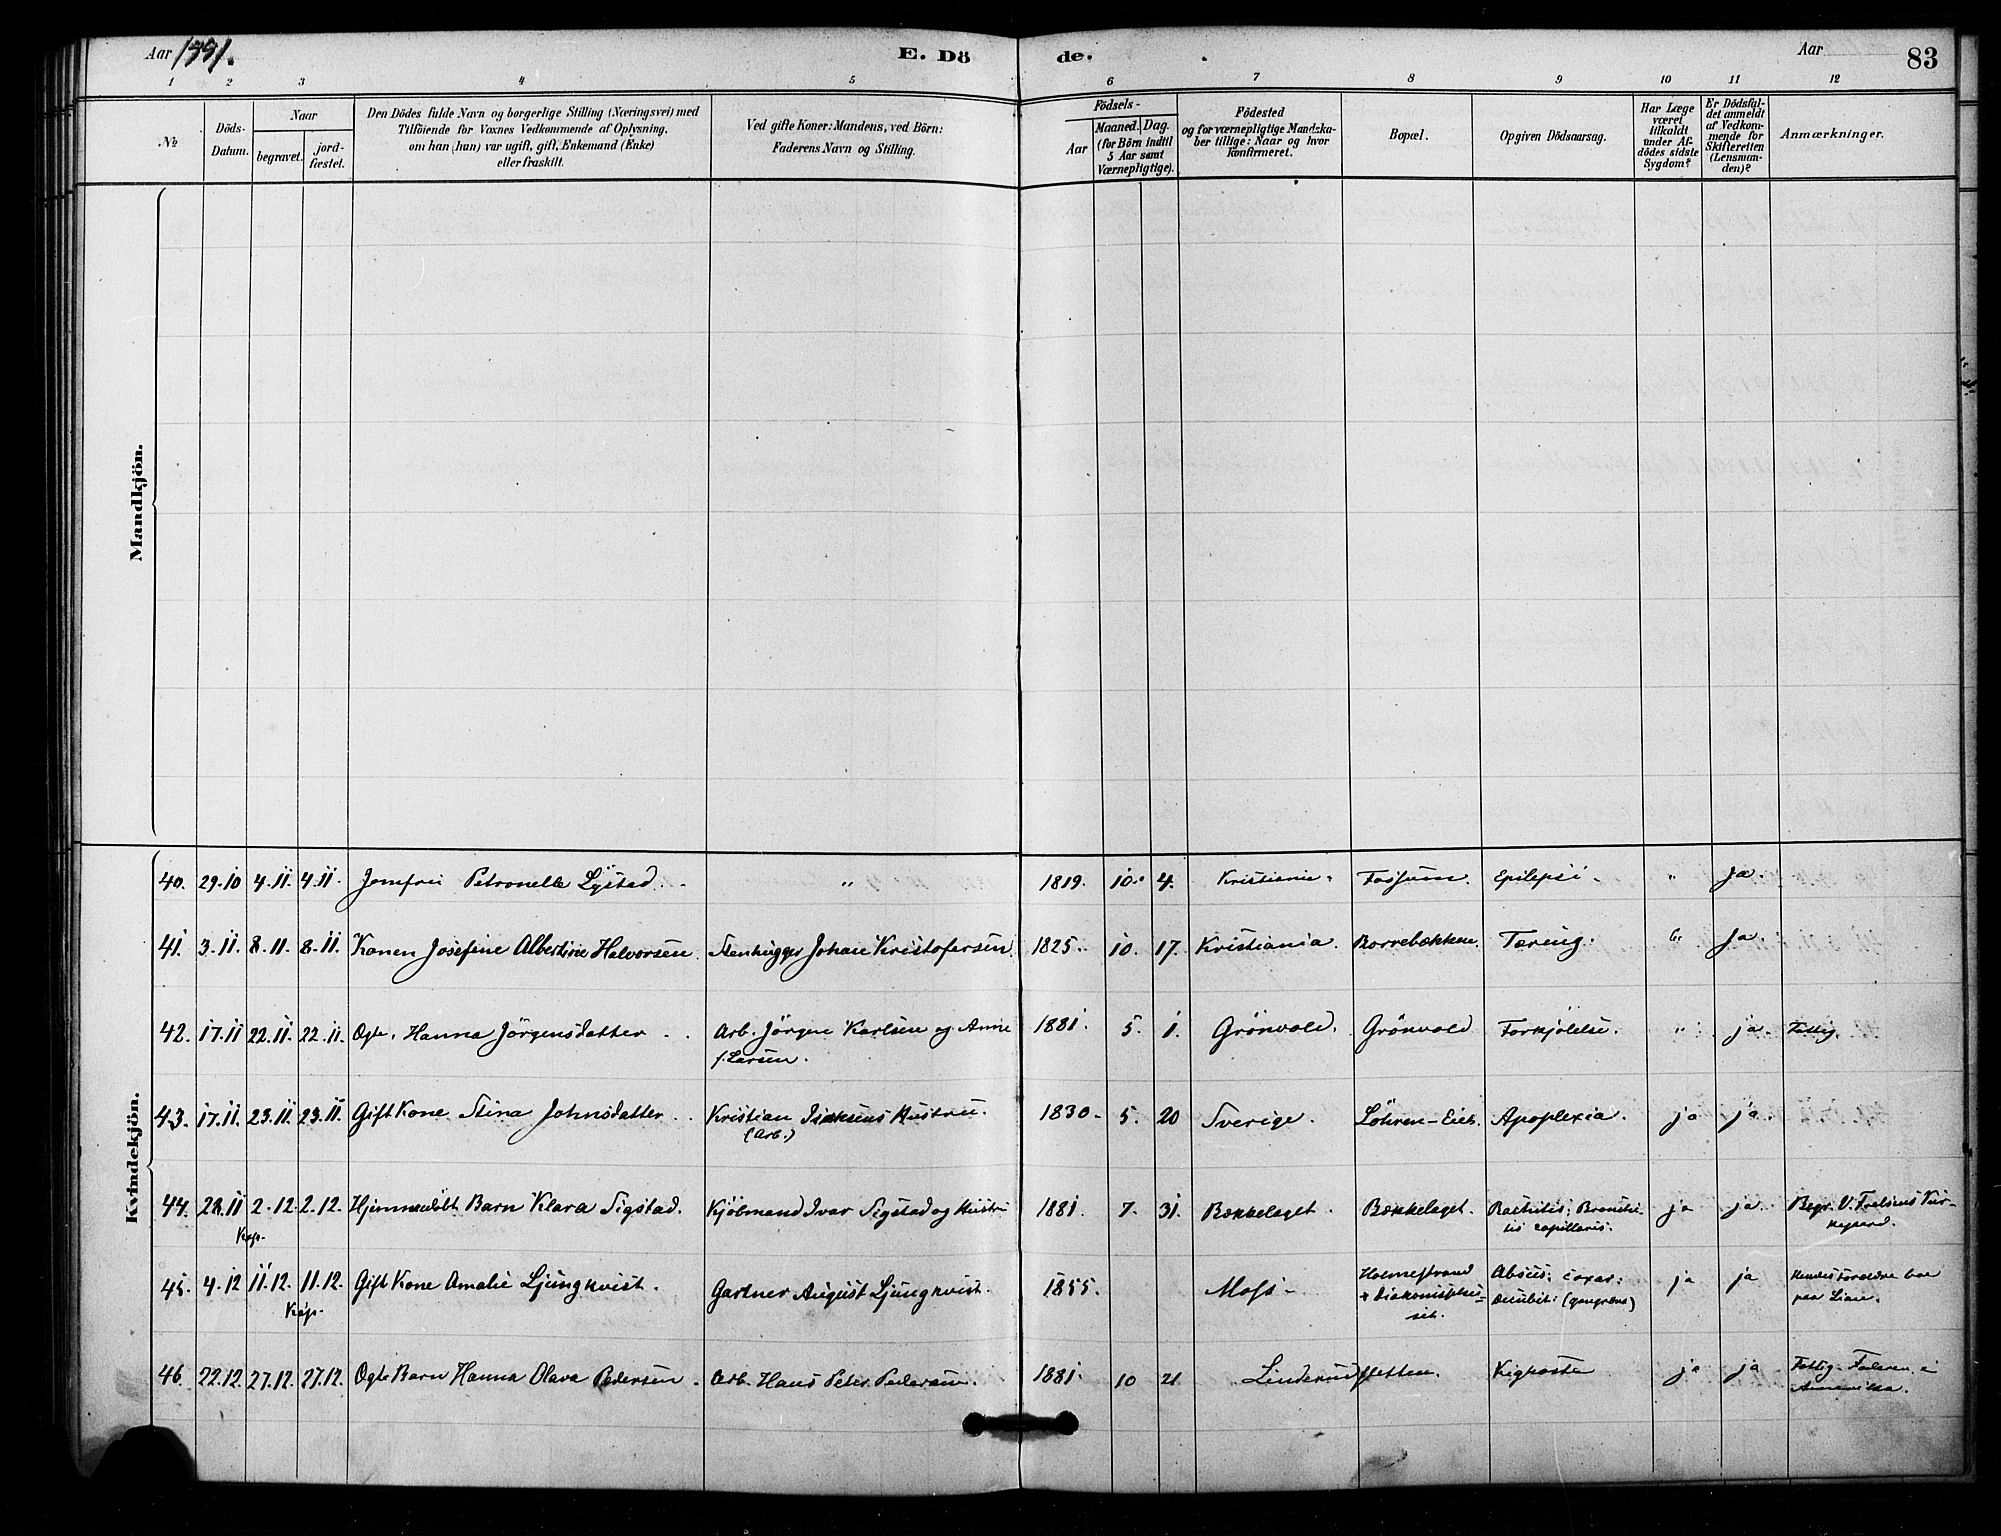 Aar
E. Dö
de.
Aar
83
1 2 3 4 5 6 7 8 9 10 11 12
No
Döds-
Datum.
Naar
begravet.
jord-
fæstet.
Den Dödes fulde Navn og borgerlige Stilling (Næringsvei) med
Tilföiende for Voxnes Vedkommende af Oplysning,
om han (hun) var ugift, gift, Enkemand (Enke)
eller fraskilt.
Ved gifte Koner: Mandens, ved Börn:
Faderens Navn og Stilling.
Födsels-
Aar
Maaned. Dag.
(for Börn indtil
5 Aar samt
Værnepligtige).
Födested
og for værnepligtige Mandska-
ber tillige: Naar og hvor
Konfirmeret.
Bopæl.
Opgiven Dödsaarsag.
Har Læge
været
tilkaldt
under Af-
dödes sidste
Sygdom?
Er Dödsfal-
det anmeldt
af Vedkom-
mende for
Skifteretten
(Lensman-
den)?
Anmærkninger.
Mandkjön.
Kvindekjön.
40. 29.10 4.11. 4.11. Jomfru Petronelle Lystad. " 1819. 10. 4. Kristiania. Fossum. Epilepsi. " Ja.
41. 3.11. 8.11. 8.11. Konen Josefine Albertine Halvorsen Stenhugger Johan Kristofersen 1825. 10. 17. Kristiania. Borrebækken. Tæring. " Ja.
42. 17.11 22.11. 22.11. Ægte. Hanna Jörgensdatter Arb. Jörgen Karlsen og Anne 1881. 5. 1. Grönvold. Grönvold Forkjölelse. " ja. Fattig.
f. Larsen.
43. 17.11. 23.11 23.11 Gift Kone Stina Johnsdatter Kristian Isaksens Hustru. 1830. 5. 20 Sverige. Löhren-Eieb. Apoplexia. ja ja.
(Arb.)
44. 28.11 2.12. 2.12. Hjemmedöbt Barn Klara Sigstad. Kjöbmand Ivar Sigstad og Hustru 1881. 7. 31. Bækkelaget. Bækkelaget. Rachitis; Bronchi- ja ja. Begr. V. Frelsers Kir-
Kap. tis capillaris. kegaard.
45. 4.12 11.12. 11.12. Gift Kone Amalie Ljungkvist. Gartner August Ljungkvist. 1855. Moss Holmestrand Absces: coxar: ja ja Hendes Forældre bor
Kap. Decubit: (gangræna) paa Lian.
46. 22.12. 27.12. 27.12. Ægte Barn Hanna Olava Pedersen. Arb. Hans Peter Pedersen. 1881. 10 21 Linderudsletten. Kighoste ja ja Fattig. Faderen i
Amerika.